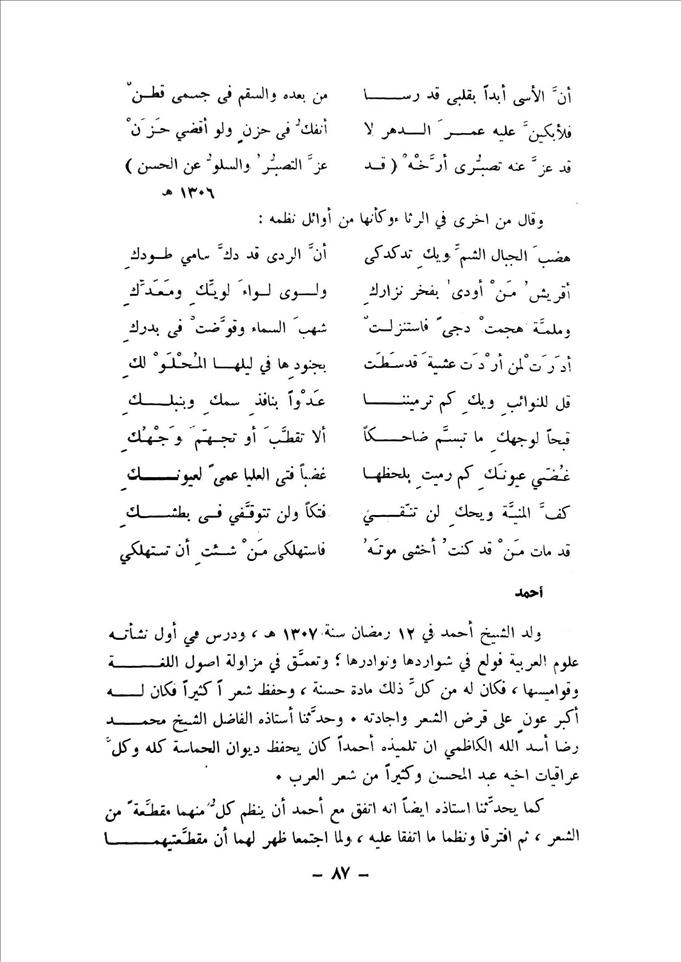 أنَّ الأسى أبداً بقلبي قد رسـا من بعده والسقم في جسمي قطنْ
فلأبكينَّ عليه عمرَ الدهر لا أنفكُّ في حزنٍ ولو أقضي حَزَنْ
قد عزَّ عنه تصبُّرى أرَّخْهُ (قد عزَّ التصبُّرُ والسلوُّ عن الحسن)
١٣٠٦ هـ
وقال من اخرى في الرثاء وكأنها من أوائل نظمه :
هضبَ الجبال الشمِّ ويكِ تدكدكى أنَّ الردى قد دكَّ سامي طودكِ
أقريشُ مَنْ أودى بفخر نزاركِ ولوى لواءَ لويّكِ ومَعَدِّكِ
وملمَّة هجمتْ دجىً فاستنزلتْ شهبَ السماء وقوَّضتْ في بدركِ
أدَرَتْ لمن أرْدَت عشيةَ قد سَطَت بجنودِها في ليلها المُحْلَوْلكِ
قل للنوائب ويكِ كم ترميننا عَدْواً بنافذِ سمكِ وبنبلكِ
قبحاً لوجهكِ ما تبسَّم ضاحكاً ألا تقطَّبَ أو تجهّمَ وَجْهُكِ
غُضّي عيونَكِ كم رميتِ بلحظها غضباً فتى العليا عمىً لعيونكِ
كفَّ المنيَّة ويحكِ لن تتّقي فتكاً ولن تتوقَّفي في بطشكِ
قد مات مَنْ قد كنتُ أخشى موتهُ فاستهلكي مَنْ شئتِ أن تستهلكي
أحمد
ولد الشيخ أحمد في ١٢ رمضان سنة ١٣٠٧ هـ ، ودرس في أول نشأته
علوم العربية فولع في شواردها ونوادرها ؛ وتعمَّق في مزاولة اصول اللغة
وقواميسها ، فكان له من كلِّ ذلك مادة حسنة ، وحفظ شعراً كثيراً فكان له
أكبر عونٍ على قرض الشعر واجادته ٠ وحدَّثنا أستاذه الفاضل الشيخ محمد
رضا أسد الله الكاظمي ان تلميذه أحمداً كان يحفظ ديوان الحماسة كله وكلَّ
عراقيات اخيه عبد المحسن وكثيراً من شعر العرب ٠
كما يحدِّثنا استاذه ايضاً انه اتفق مع أحمد أن ينظم كلُّ منهما مقطَّعةً من
الشعر ، ثم افترقا ونظما ما اتفقا عليه ، ولما اجتمعا ظهر لهما أن مقطَّعتيهما
– ٨٧ –